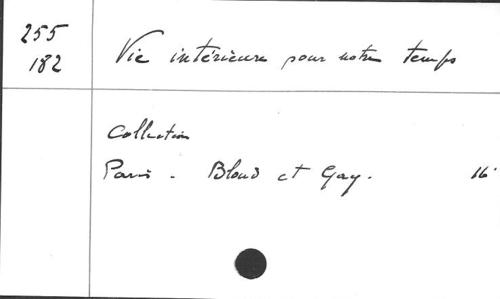 255
182
Vie intérieure pour notre temps
Collection
Paris - Bloud et Gay. 16°